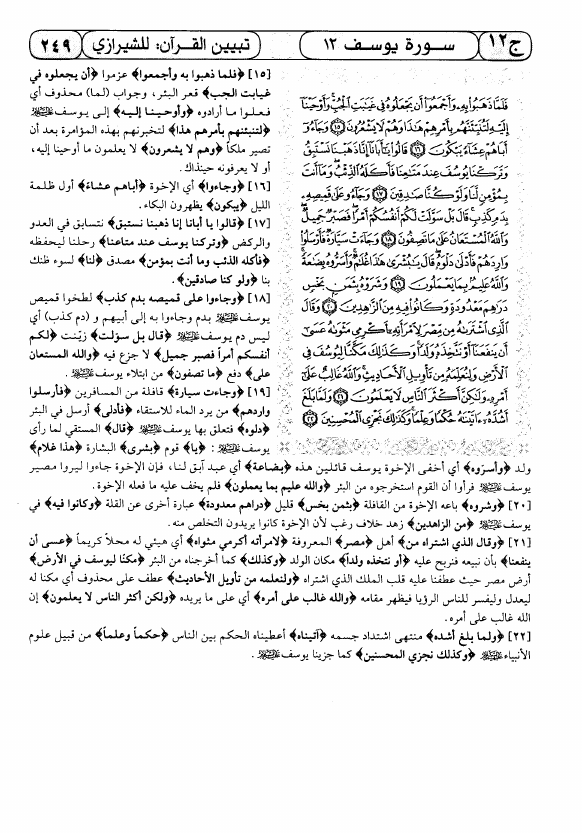 ج١٢
سورة يوسف ١٢
تبيين القرآن: للشيرازي
٢٤٩
فَلَمَّا ذَهَبُوا۟ بِهِۦ وَأَجْمَعُوٓا۟ أَن يَجْعَلُوهُ فِى غَيَٰبَتِ ٱلْجُبِّ وَأَوْحَيْنَآ
إِلَيْهِ لَتُنَبِّئَنَّهُم بِأَمْرِهِمْ هَٰذَا وَهُمْ لَا يَشْعُرُونَ ﴿١٥﴾ وَجَآءُو
أَبَاهُمْ عِشَآءً يَبْكُونَ ﴿١٦﴾ قَالُوا۟ يَٰٓأَبَانَآ إِنَّا ذَهَبْنَا نَسْتَبِقُ
وَتَرَكْنَا يُوسُفَ عِندَ مَتَٰعِنَا فَأَكَلَهُ ٱلذِّئْبُ وَمَآ أَنتَ
بِمُؤْمِنٍ لَّنَا وَلَوْ كُنَّا صَٰدِقِينَ ﴿١٧﴾ وَجَآءُو عَلَىٰ قَمِيصِهِۦ
بِدَمٍ كَذِبٍ قَالَ بَلْ سَوَّلَتْ لَكُمْ أَنفُسُكُمْ أَمْرًا فَصَبْرٌ جَمِيلٌ
وَٱللَّهُ ٱلْمُسْتَعَانُ عَلَىٰ مَا تَصِفُونَ ﴿١٨﴾ وَجَآءَتْ سَيَّارَةٌ فَأَرْسَلُوا۟
وَارِدَهُمْ فَأَدْلَىٰ دَلْوَهُۥ قَالَ يَٰبُشْرَىٰ هَٰذَا غُلَٰمٌ وَأَسَرُّوهُ بِضَٰعَةً
وَٱللَّهُ عَلِيمٌۢ بِمَا يَعْمَلُونَ ﴿١٩﴾ وَشَرَوْهُ بِثَمَنٍۭ بَخْسٍ
دَرَٰهِمَ مَعْدُودَةٍ وَكَانُوا۟ فِيهِ مِنَ ٱلزَّٰهِدِينَ ﴿٢٠﴾ وَقَالَ
ٱلَّذِى ٱشْتَرَىٰهُ مِن مِّصْرَ لِٱمْرَأَتِهِۦٓ أَكْرِمِى مَثْوَىٰهُ عَسَىٰٓ
أَن يَنفَعَنَآ أَوْ نَتَّخِذَهُۥ وَلَدًا وَكَذَٰلِكَ مَكَّنَّا لِيُوسُفَ فِى
ٱلْأَرْضِ وَلِنُعَلِّمَهُۥ مِن تَأْوِيلِ ٱلْأَحَادِيثِ وَٱللَّهُ غَالِبٌ عَلَىٰٓ
أَمْرِهِۦ وَلَٰكِنَّ أَكْثَرَ ٱلنَّاسِ لَا يَعْلَمُونَ ﴿٢١﴾ وَلَمَّا بَلَغَ
أَشُدَّهُۥٓ ءَاتَيْنَٰهُ حُكْمًا وَعِلْمًا وَكَذَٰلِكَ نَجْزِى ٱلْمُحْسِنِينَ ﴿٢٢﴾
[١٥] ﴿فلما ذهبوا به وأجمعوا﴾ عزموا ﴿أن يجعلوه في
غيابت الجب﴾ قعر البئر، وجواب (لما) محذوف أي
فعلوا ما أرادوه ﴿وأوحينا إليه﴾ إلى يوسف عليه السلام
﴿لتنبئنهم بأمرهم هذا﴾ لتخبرنهم بهذه المؤامرة بعد أن
تصير ملكاً ﴿وهم لا يشعرون﴾ لا يعلمون ما أوحينا إليه،
أو لا يعرفونه حينذاك.
[١٦] ﴿وجاءوا﴾ أي الإخوة ﴿أباهم عشاء﴾ أول ظلمة
الليل ﴿يبكون﴾ يظهرون البكاء.
[١٧] ﴿قالوا يا أبانا إنا ذهبنا نستبق﴾ نتسابق في العدو
والركض ﴿وتركنا يوسف عند متاعنا﴾ رحلنا ليحفظه
﴿فأكله الذئب وما أنت بمؤمن﴾ مصدق ﴿لنا﴾ لسوء ظنك
بنا ﴿ولو كنا صادقين﴾.
[١٨] ﴿وجاءوا على قميصه بدم كذب﴾ لطخوا قميص
يوسف بدم وجاءوا به إلى أبيهم و (دم كذب) أي
ليس دم يوسف عليه السلام ﴿قال بل سولت﴾ زيّنت ﴿لكم
أنفسكم أمراً فصبر جميل﴾ لا جزع فيه ﴿والله المستعان
على﴾ دفع ﴿ما تصفون﴾ من ابتلاء يوسف عليه السلام.
[١٩] ﴿وجاءت سيارة﴾ قافلة من المسافرين ﴿فأرسلوا
واردهم﴾ من يرد الماء للاستقاء ﴿فأدلى﴾ أرسل في البئر
﴿دلوه﴾ فتعلق بها يوسف عليه السلام ﴿قال﴾ المستقي لما رأى
يوسف عليه السلام: ﴿يا﴾ قوم ﴿بشرى﴾ البشارة ﴿هذا غلام﴾
ولد ﴿وأسروه﴾ أي أخفى الإخوة يوسف قائلين هذه ﴿بضاعة﴾ أي عبد آبق لنا، فإن الإخوة جاءوا ليروا مصير
يوسف عليه السلام فرأوا أن القوم استخرجوه من البئر ﴿والله عليم بما يعملون﴾ فلم يخف عليه ما فعله الإخوة.
[٢٠] ﴿وشروه﴾ باعه الإخوة من القافلة ﴿بثمن بخس﴾ قليل ﴿دراهم معدودة﴾ عبارة أخرى عن القلة ﴿وكانوا فيه﴾ في
يوسف عليه السلام ﴿من الزاهدين﴾ زهد خلاف رغب لأن الإخوة كانوا يريدون التخلص منه.
[٢١] ﴿وقال الذي اشتراه من﴾ أهل ﴿مصر﴾ المعروفة ﴿لامرأته أكرمي مثواه﴾ أي هيئي له محلاً كريماً ﴿عسى أن
ينفعنا﴾ بأن نبيعه فنربح عليه ﴿أو نتخذه ولداً﴾ مكان الولد ﴿وكذلك﴾ كما أخرجناه من البئر ﴿مكنّا ليوسف في الأرض﴾
أرض مصر حيث عطفنا عليه قلب الملك الذي اشتراه ﴿ولنعلمه من تأويل الأحاديث﴾ عطف على محذوف أي مكنا له
ليعدل وليفسر للناس الرؤيا فيظهر مقامه ﴿والله غالب على أمره﴾ أي على ما يريده ﴿ولكن أكثر الناس لا يعلمون﴾ إن
الله غالب على أمره.
[٢٢] ﴿ولما بلغ أشده﴾ منتهى اشتداد جسمه ﴿آتيناه﴾ أعطيناه الحكم بين الناس ﴿حكماً وعلماً﴾ من قبيل علوم
الأنبياء عليهم السلام ﴿وكذلك نجزي المحسنين﴾ كما جزينا يوسف عليه السلام.